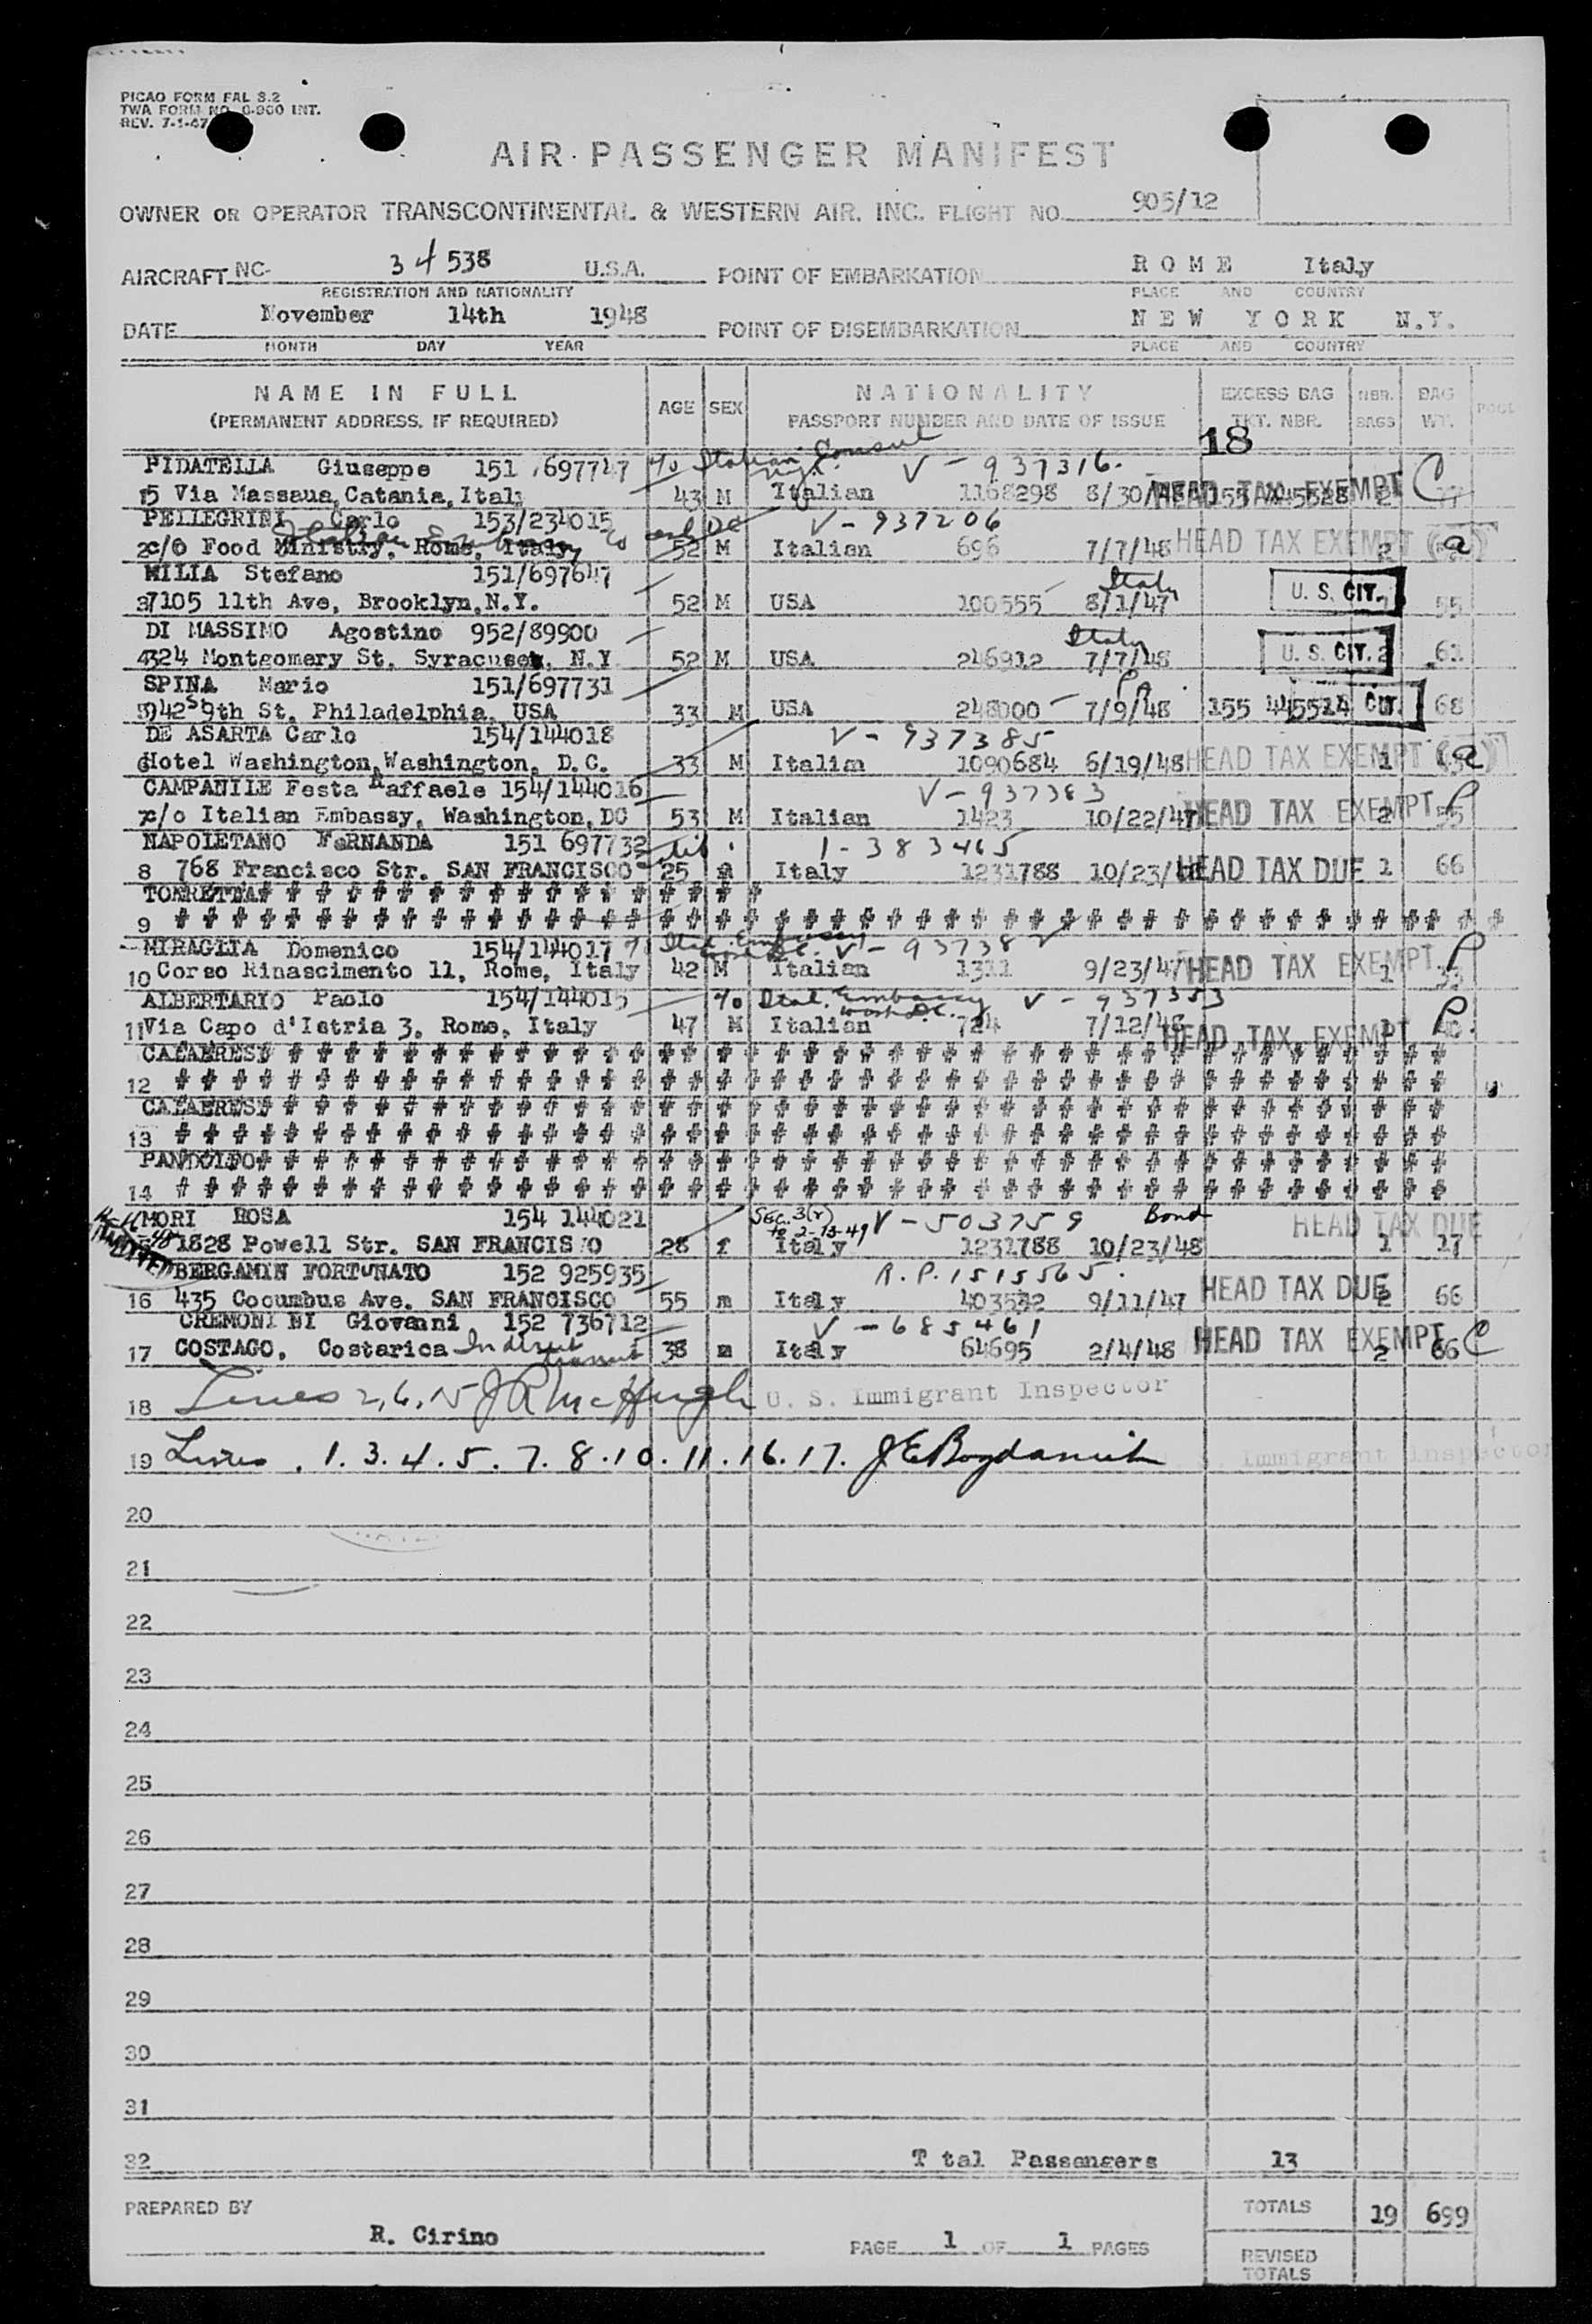 PICAO FORM FAL 3.2
TWA FORM NO. 0-900 INT.
REV. 7-1-47
AIR PASSENGER MANIFEST
OWNER OR OPERATOR TRANSCONTINENTAL & WESTERN AIR, INC. FLIGHT NO. 905/12
AIRCRAFT NC- 34538 U.S.A. POINT OF EMBARKATION ROME Italy
REGISTRATION AND NATIONALITY PLACE AND COUNTRY
DATE November 14th 1948 POINT OF DISEMBARKATION NEW YORK N.Y.
MONTH DAY YEAR PLACE AND COUNTRY
NAME IN FULL AGE SEX NATIONALITY EXCESS BAG NBR. BAG
(PERMANENT ADDRESS, IF REQUIRED) PASSPORT NUMBER AND DATE OF ISSUE TKT. NBR. BAGS WT.
18
PIDATELLA Giuseppe 151 697747 c/o Italian Consul V-937316.
1 5 Via Massaua, Catania, Italy 43 M Italian 1168298 8/30/48 HEAD TAX EXEMPT C
PELLEGRINI Carlo 153/234015 V-937206
2 c/o Food Ministry, Rome, Italy 52 M Italian 696 7/7/48 HEAD TAX EXEMPT 2 a
MILIA Stefano 151/697647 Italy
3 7105 11th Ave, Brooklyn, N.Y. 52 M USA 100555 8/1/47 U.S. CIT. 55
DI MASSIMO Agostino 952/89900 Italy
4 324 Montgomery St, Syracuse, N.Y. 52 M USA 246912 7/7/48 U.S. CIT. 2 61
SPINA Mario 151/697731
5 942 S 9th St. Philadelphia, USA 33 M USA 248000 7/9/48 155 445514 CIT. 68
DE ASARTA Carlo 154/144018 V-937385
6 Hotel Washington, Washington, D.C. 33 M Italian 1090684 6/19/48 HEAD TAX EXEMPT 1 a
CAMPANILE Festa Raffaele 154/144016 V-937383
7 c/o Italian Embassy, Washington, DC 53 M Italian 1423 10/22/47 HEAD TAX EXEMPT 2 55 P
NAPOLETANO FeRNANDA 151 697732 1-383465
8 768 Francisco Str. SAN FRANCISCO 25 Italy 1231788 10/23/48 HEAD TAX DUE 1 66
TORRETTA # # # # # # # # # # # # # # # # # #
9 # # # # # # # # # # # # # # # # # # # # # # # # # # # # # # # # # # # # # # # # # # #
MIRAGLIA Domenico 154/144017 c/o Ital. Embassy V-937382
10 Corso Rinascimento 11, Rome, Italy 42 M Italian 1311 9/23/47 HEAD TAX EXEMPT 1 P
ALBERTARIO Paolo 154/144015 c/o Ital. Embassy Wash D.C. V-937353
11 Via Capo d'Istria 3, Rome, Italy 47 M Italian 724 7/12/48 HEAD TAX EXEMPT P
# # # # # # # # # # # # # # # # # # # # # # # # # # # # # # # # # # # # # # # # #
12 # # # # # # # # # # # # # # # # # # # # # # # # # # # # # # # # # # # # # # # # # # # #
# # # # # # # # # # # # # # # # # # # # # # # # # # # # # # # # # # # # # # # # #
13 # # # # # # # # # # # # # # # # # # # # # # # # # # # # # # # # # # # # # # # # # # # #
PANDOLFO # # # # # # # # # # # # # # # # # # # # # # # # # # # # # # # # # # # # # # # # #
14 # # # # # # # # # # # # # # # # # # # # # # # # # # # # # # # # # # # # # # # # # # # #
MORI ROSA 154 144021 Sec. 3(2) to 2-13-49 V-503759 Bond HEAD TAX DUE
1828 Powell Str. SAN FRANCISO 28 f Italy 1231788 10/23/48 1 17
BERGAMIN FORTUNATO 152 925935 R.P. 1515565.
16 435 Cocumbus Ave. SAN FRANCISCO 55 m Italy 9/11/47 HEAD TAX DUE 2 66
CREMONINI Giovanni 152 736712 V-685461
17 COSTAGO, Costarica In direct transit 38 m Italy 64695 2/4/48 HEAD TAX EXEMPT 2 66 C
18 Lines 2, 6, 15 J R McHugh U. S. Immigrant Inspector
19 Lines . 1. 3. 4. 5. 7. 8. 10. 11. 16. 17. J E Bogdanich U. S. Immigrant Inspector
20
21
22
23
24
25
26
27
28
29
30
31
32 T tal Passengers 13
PREPARED BY TOTALS 19 699
R. Cirino PAGE 1 OF 1 PAGES
REVISED TOTALS